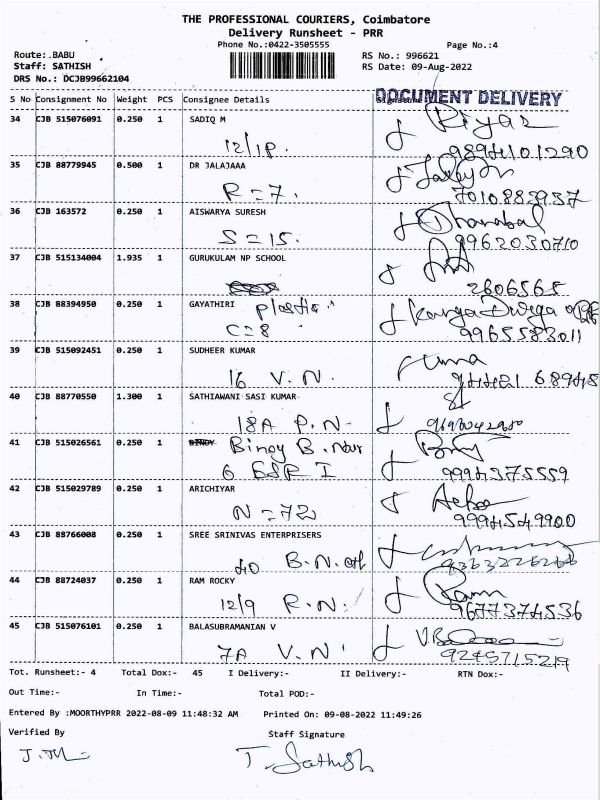 THE PROFESSIONAL COURIERS, Coimbatore
Delivery Runsheet - PRR
Phone No.:0422-3505555 Page No.:4
Route:.BABU RS No.: 996621
Staff: SATHISH RS Date: 09-Aug-2022
DRS No.: DCJB99662104
DOCUMENT DELIVERY
S No Consignment No Weight PCS Consignee Details
34 CJB 515076091 0.250 1 SADIQ M Riyaz
12/1P. 9894101290
35 CJB 88779945 0.500 1 DR JALAJAAA
R=7.
36 CJB 163572 0.250 1 AISWARYA SURESH Dhanabal
S=15. 9962030710
37 CJB 515134004 1.935 1 GURUKULAM NP SCHOOL
2606565
38 CJB 88394950 0.250 1 GAYATHIRI plastic
C=8 9965583011
39 CJB 515092451 0.250 1 SUDHEER KUMAR
16 V.N. 94421 68948
40 CJB 88770550 1.300 1 SATHIAWANI SASI KUMAR
18A P.N-
41 CJB 515026561 0.250 1 BINOY Binoy B.
6 9994375559
42 CJB 515029789 0.250 1 ARICHIYAR
N=72 9994549900
43 CJB 88766008 0.250 1 SREE SRINIVAS ENTERPRISERS
40 B.N.
44 CJB 88724037 0.250 1 RAM ROCKY Ram
12/9 R.N. 9677374536
45 CJB 515076101 0.250 1 BALASUBRAMANIAN V
7A V.N 9245715219
Tot. Runsheet:- 4 Total Dox:- 45 I Delivery:- II Delivery:- RTN Dox:-
Out Time:- In Time:- Total POD:-
Entered By :MOORTHYPRR 2022-08-09 11:48:32 AM Printed On: 09-08-2022 11:49:26
Verified By Staff Signature
T. Sathish